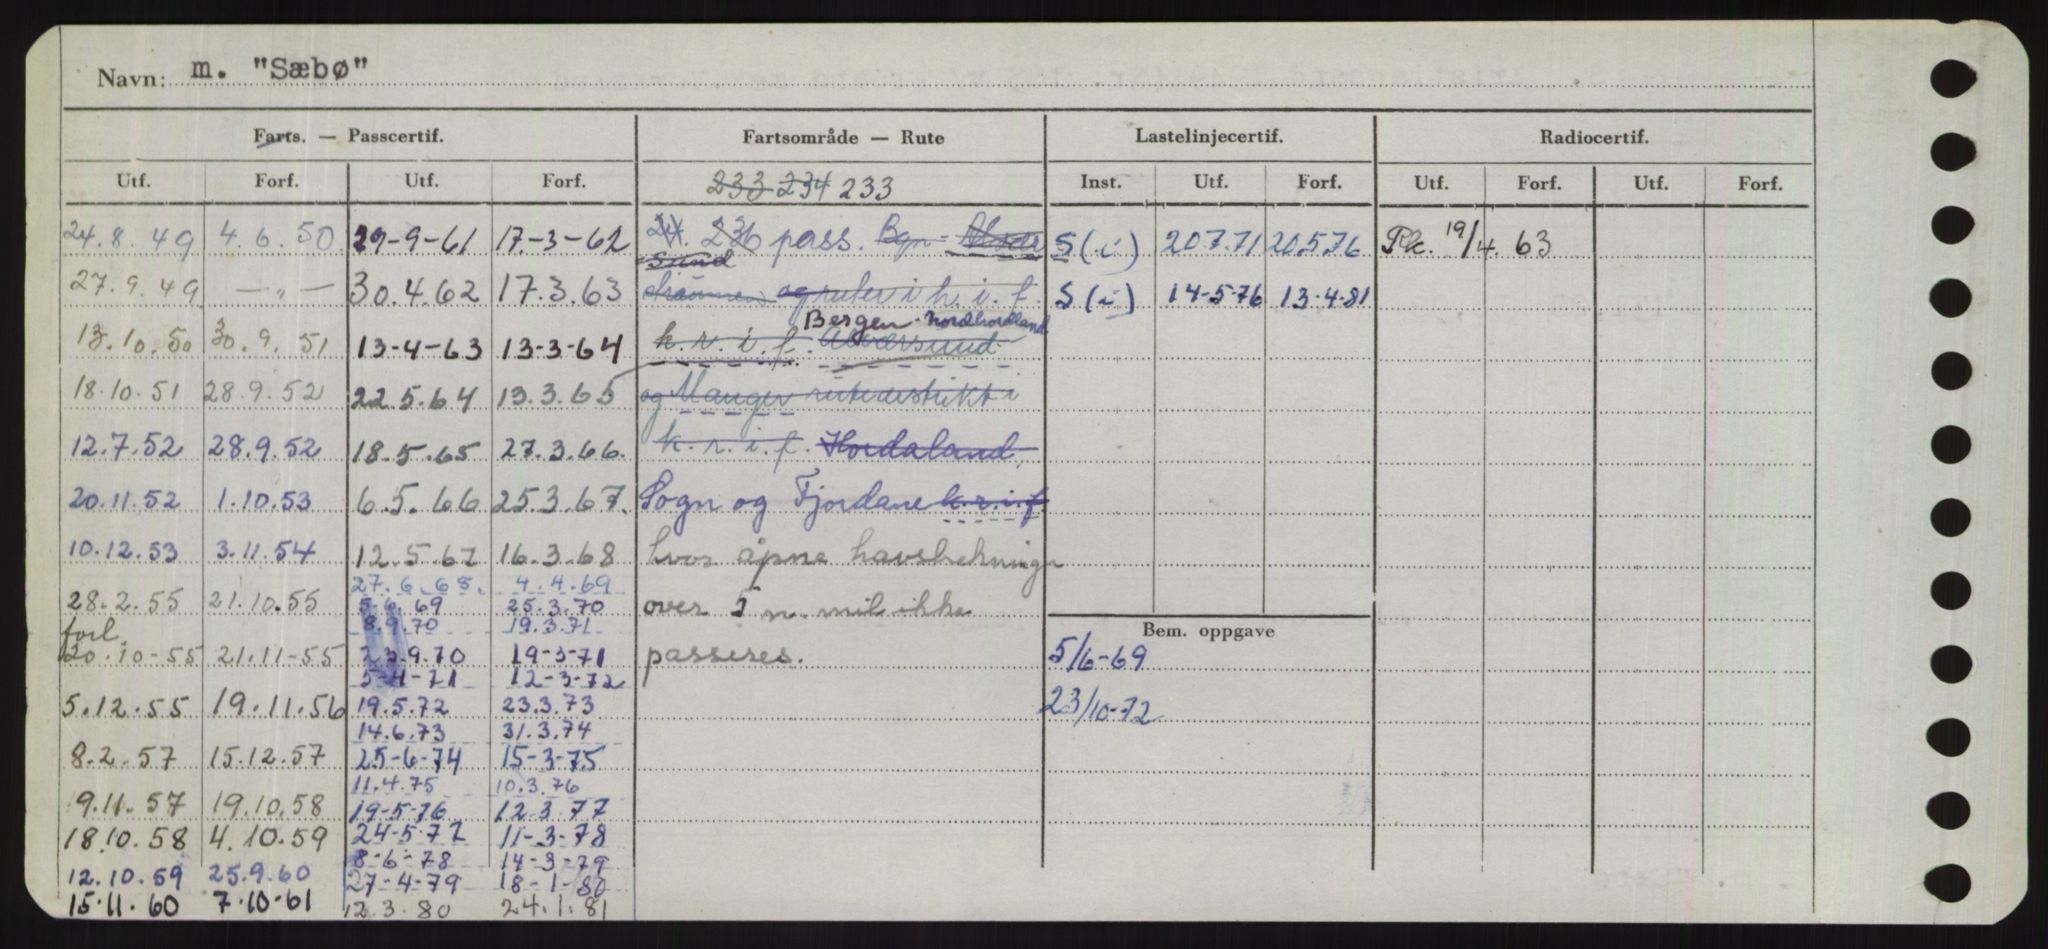 Navn: m. "Sæbø"
Farts. — Passcertif. Fartsområde — Rute Lastelinjecertif. Radiocertif.
Utf. Forf. Utf. Forf. 233 234 233 Inst. Utf. Forf. Utf. Forf. Utf. Forf.
24.8.49 4.6.50 29-9-61 17-3-62 236 pass. Bgn- S(i) 20.7.71 20.5.76 Rk. 19/4.63
sund
27.9.49 — „ — 30.4.62 17.3.63 og ruter i h.i.f. S(i) 14-5-76 13-4-81
Bergen - Nordhordland
13.10.50 30.9.51 13-4-63 13-3-64 k.r.i.f. Alversund
18.10.51 28.9.52 22.5.64 13.3.65 og Manger rutedistrikt i
12.7.52 28.9.52 18.5.65 27.3.66. k.r.i.f. Hordaland,
20.11.52 1.10.53 6.5.66 25.3.67. Sogn og Fjordane k.r.i.f
10.12.53 3.11.54 12.5.67 16.3.68 hvor åpne havstrekninger
27.6.68. 4.4.69
28.2.55 21.10.55 5.6.69 25.3.70 over 5 n.mil ikke
forl. 8.9.70 19.3.71 Bem. oppgave
20.10-55 21.11-55 23.9.70 19-3-71 passeres. 5/6-69
5-4-71 12-3-72
5.12.55 19.11.56 19.5.72 23.3.73 23/10-72
14.6.73 31.3.74
8.2.57 15.12.57 25-6-74 15-3-75
11.4.75 10.3.76
9.11.57 19.10.58 19-5-76 12.3.77
18.10.58 4.10.59 24-5-77 11-3-78
8-6-78 14-3-79
12.10.59 25.9.60 27-4-79 18-1-80
15.11.60 7.10-61 12.3.80 24.1.81